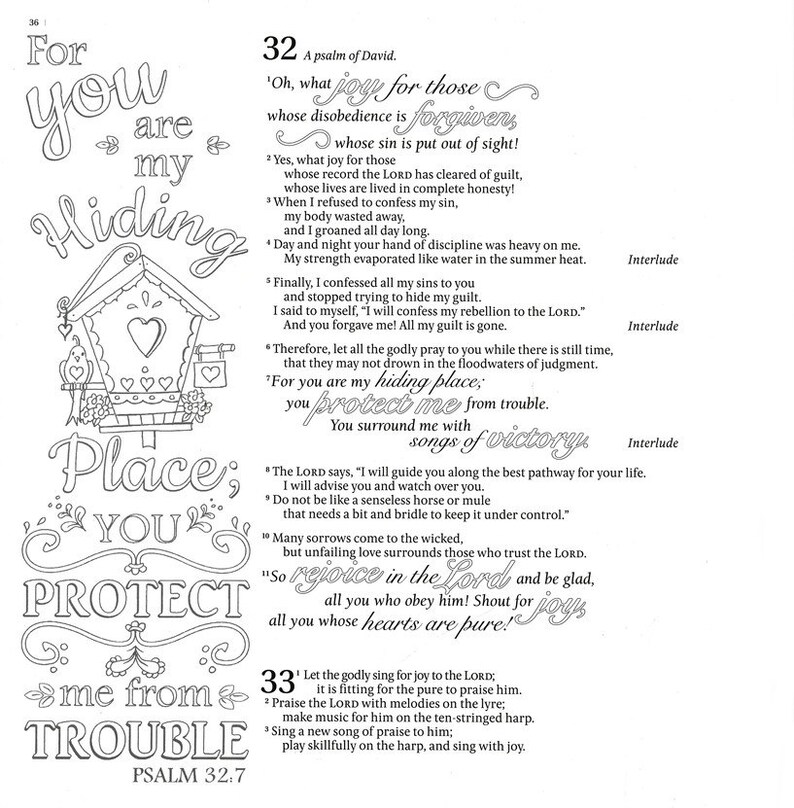 36
For
you
are
my
Hiding
Place;
YOU
PROTECT
me from
TROUBLE
PSALM 32:7
32 A psalm of David.
1 Oh, what joy for those
whose disobedience is forgiven,
whose sin is put out of sight!
2 Yes, what joy for those
whose record the LORD has cleared of guilt,
whose lives are lived in complete honesty!
3 When I refused to confess my sin,
my body wasted away,
and I groaned all day long.
4 Day and night your hand of discipline was heavy on me.
My strength evaporated like water in the summer heat. Interlude
5 Finally, I confessed all my sins to you
and stopped trying to hide my guilt.
I said to myself, “I will confess my rebellion to the LORD.”
And you forgave me! All my guilt is gone. Interlude
6 Therefore, let all the godly pray to you while there is still time,
that they may not drown in the floodwaters of judgment.
7 For you are my hiding place;
you protect me from trouble.
You surround me with
songs of victory. Interlude
8 The LORD says, “I will guide you along the best pathway for your life.
I will advise you and watch over you.
9 Do not be like a senseless horse or mule
that needs a bit and bridle to keep it under control.”
10 Many sorrows come to the wicked,
but unfailing love surrounds those who trust the LORD.
11 So rejoice in the Lord and be glad,
all you who obey him! Shout for joy,
all you whose hearts are pure!
33 1 Let the godly sing for joy to the LORD;
it is fitting for the pure to praise him.
2 Praise the LORD with melodies on the lyre;
make music for him on the ten-stringed harp.
3 Sing a new song of praise to him;
play skillfully on the harp, and sing with joy.